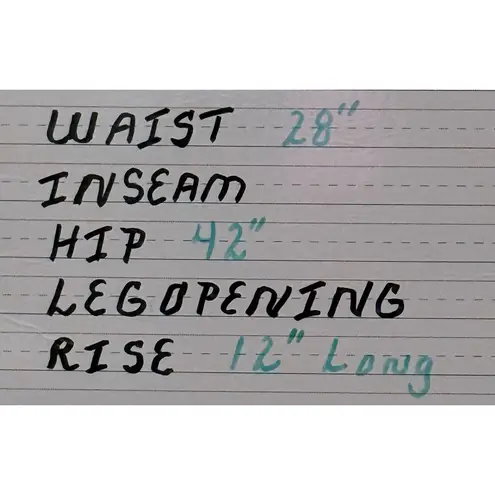 WAIST 28"
INSEAM
HIP 42"
LEGOPENING
RISE 12" Long